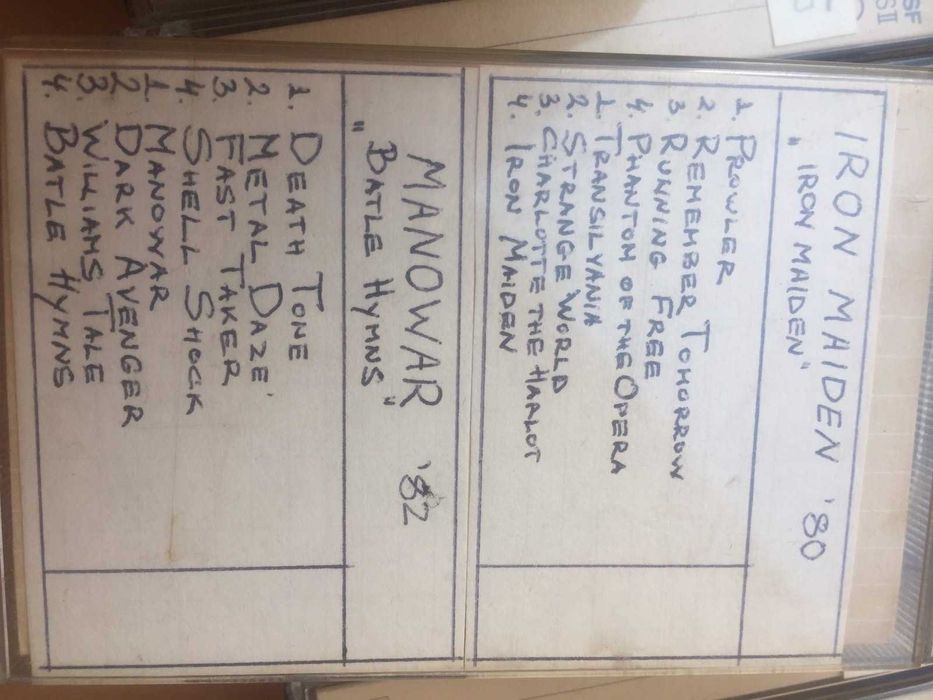 IRON MAIDEN '80
„IRON MAIDEN"
1. PROWLER
2. REMEMBER TOMORROW
3 RUNNING FREE
4. PHANTOM OF THE OPERA
1. TRANSILVANIA
2. STRANGE WORLD
3. CHARLOTTE THE HARLOT
4. IRON MAIDEN
MANOWAR '82
"BATLE HYMNS"
1. DEATH TONE
2. METAL DAZE
3. FAST TAKER
4. SHELL SHOCK
1. MANOWAR
2 DARK AVENGER
3. WILIAMS TALE
4. BATLE HYMNS
SF
SII